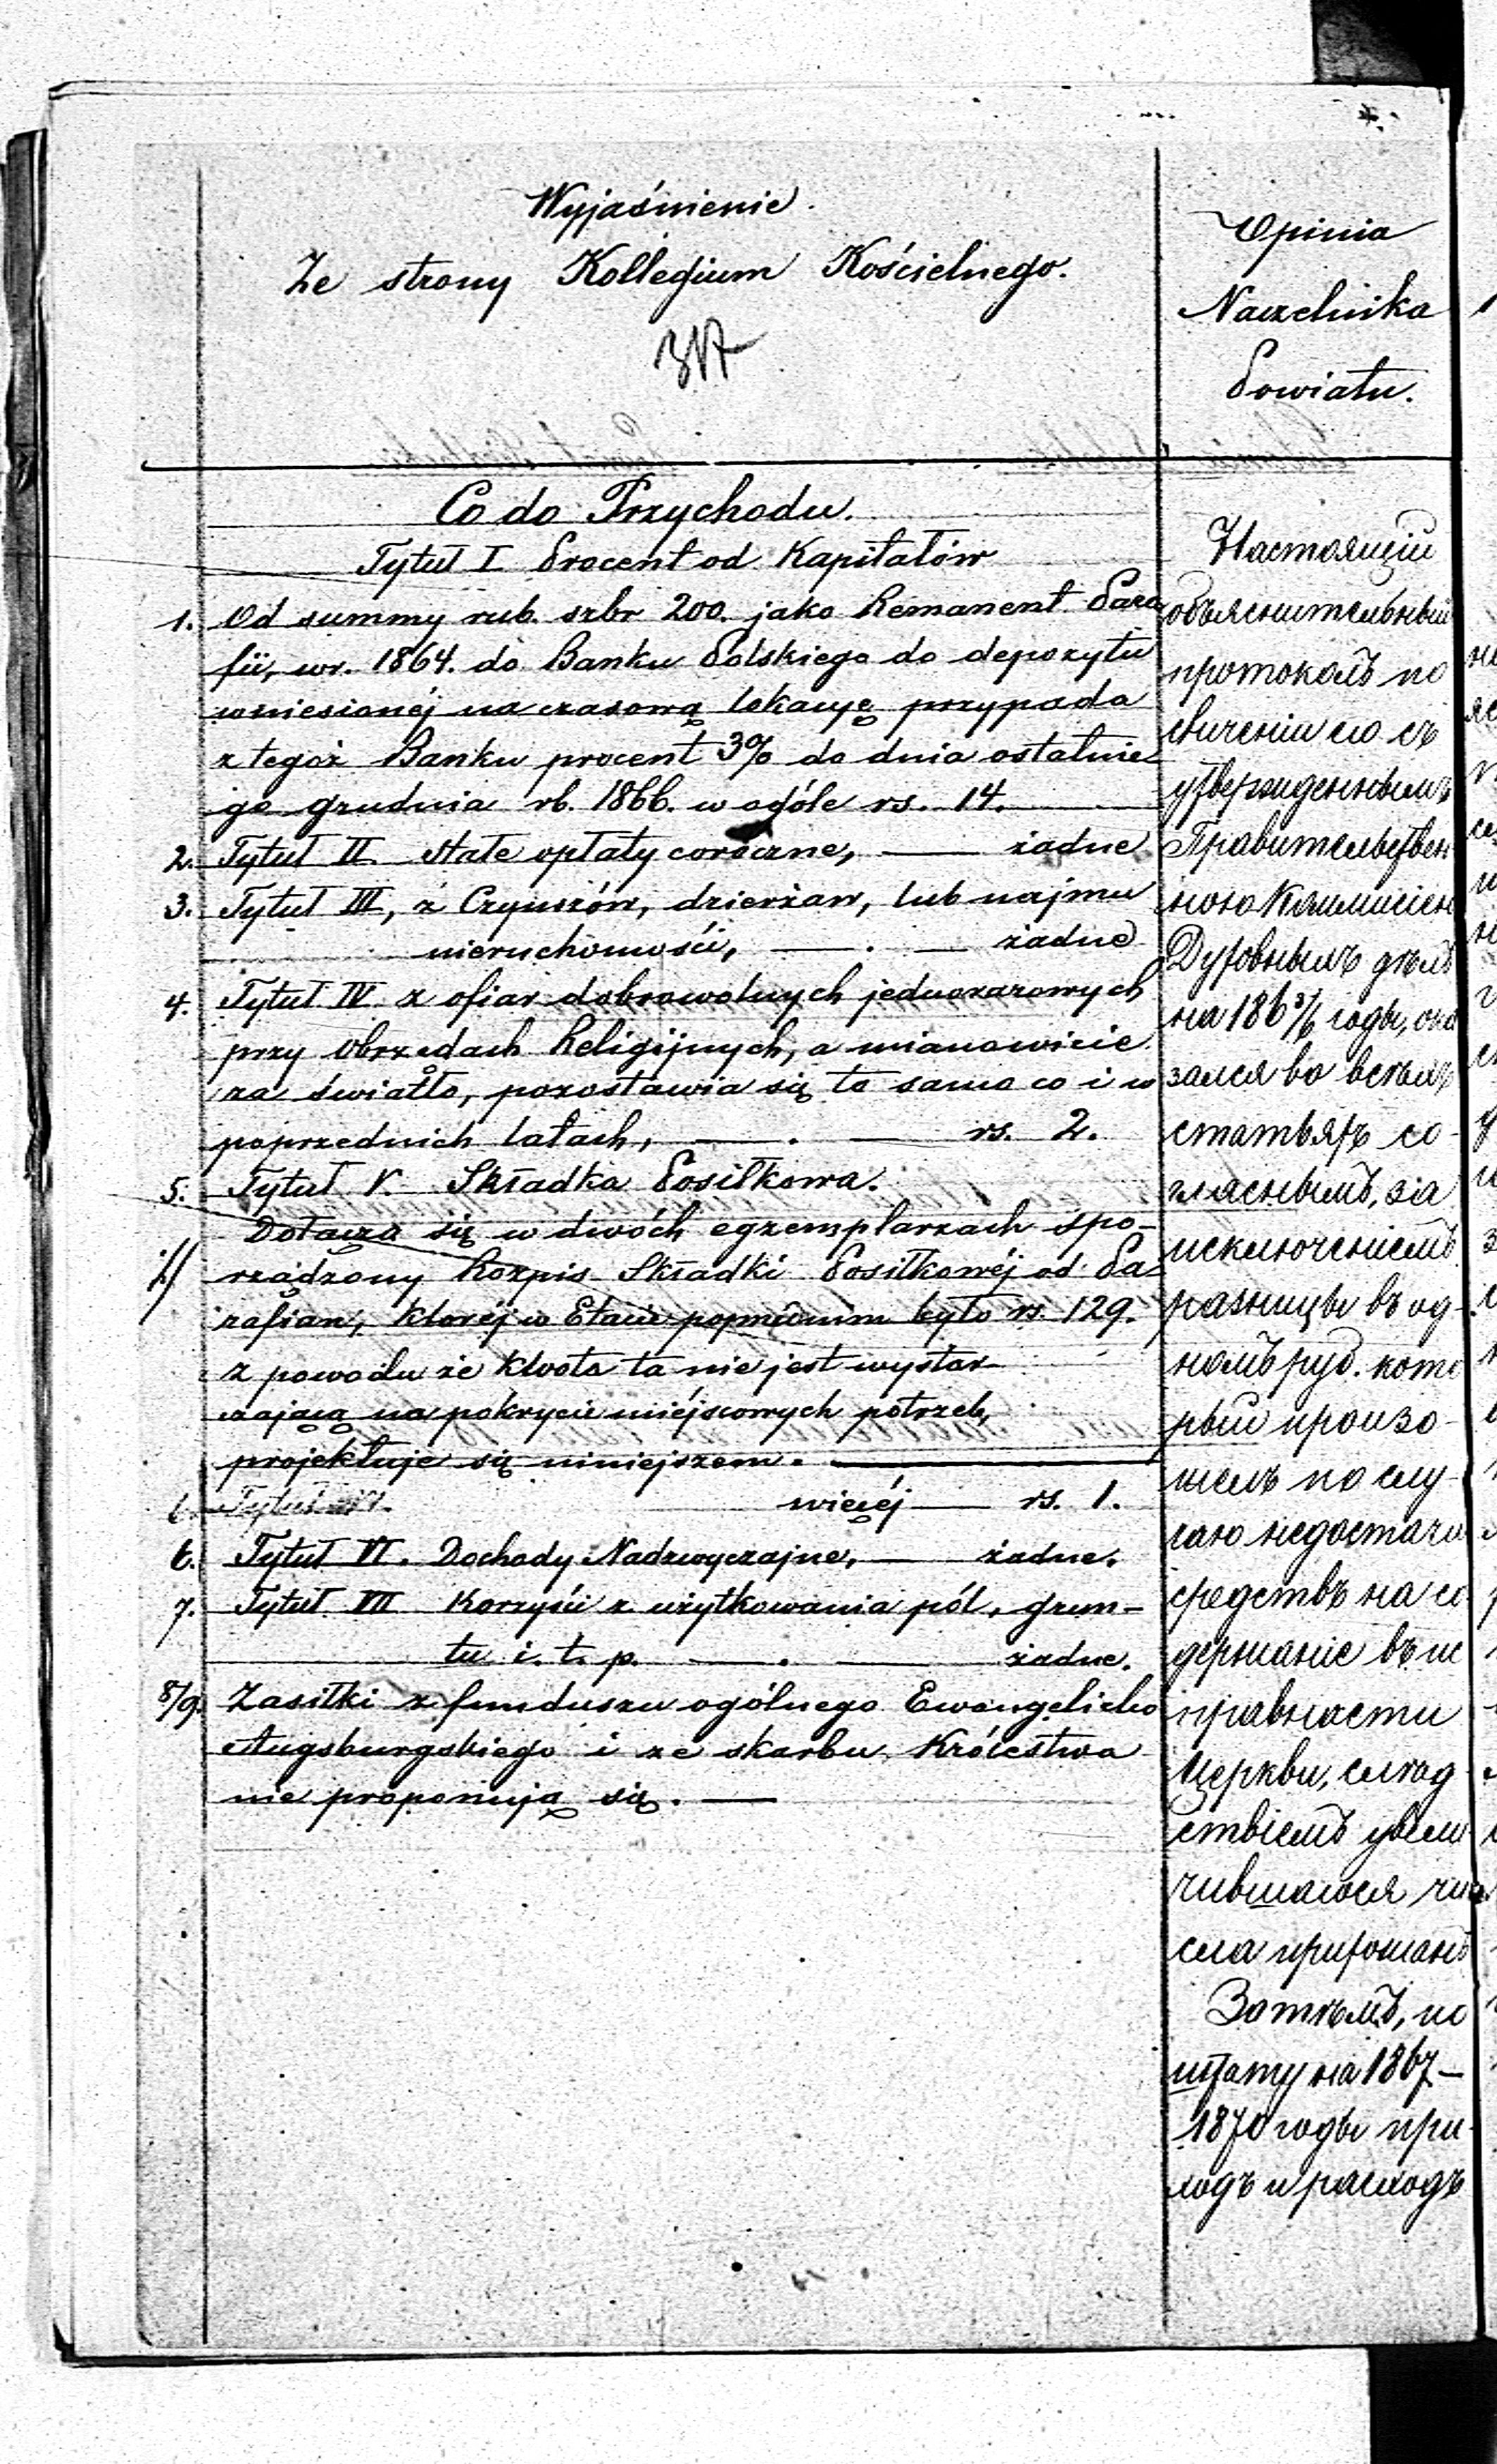 Wyjaśnienie.
Ze strony Kollegium Kościelnego.
317
Co do Przychodu.
Tytuł I Procent od Kapitałów
1. Od summy rub. srbr 200. jako Remanent Para
fii, w r. 1864. do Banku Polskiego do depozytu
wniesionéj na czasową lokacyę przypada
z tegoż Banku procent 3% do dnia ostatnie
go grudnia rb. 1866. w ogóle rs. 14.
2. Tytuł II stałe opłaty coroczne, — żadne
3. Tytuł III, z Czynszów, dzierżaw, lub najmu
nieruchomości, — . — żadne
4. Tytuł IV. z ofiar dobrowolnych jednorazowych
przy Obrzędach Religijnych, a mianowicie
za światło, pozostawia się to samo co i w
poprzednich latach, — . — rs. 2.
5. Tytuł V. Składka Posiłkowa.
Dołącza się w dwóch egzemplarzach spo-
rządzony Rozpis Składki Posiłkowéj od Pa
rafian, któréj w Etacie poprzednim było rs. 129.
z powodu że kwota ta nie jest wystar-
czającą na pokrycie miéjscowych potrzeb,
projektuje się niniejszem. —
Tytuł VI. więcéj — rs. 1.
6. Tytuł VI. Dochody Nadzwyczajne, — żadne.
7. Tytuł VII Korzyści z użytkowania pól, grun-
tu i. t. p. — . — żadne.
8/9. Zasiłki z funduszu ogólnego Ewangelicko
Augsburgskiego i ze skarbu Królestwa
nie proponują się. —
Opinia
Naczelnika
Powiatu.
Настоящій
объяснительный
протоколъ по
сличеніи его съ
утвержденнымъ
Правительствен
ною Коммисіею
Духовныхъ дѣлъ
на 186 3/6 годы, ока
зался во всѣхъ
статьяхъ со-
гласнымъ, за
исключеніемъ
разницы въ од-
номъ руб. кото
рый произо-
шелъ по слу-
чаю недостачи
средствъ на со
держаніе въ ис
правности
Церкви, слѣд
ствіемъ увели
чившагося чи
сла прихожанъ
Затѣмъ, по
штату на 1867-
1870 годы при-
ходъ и расходъ